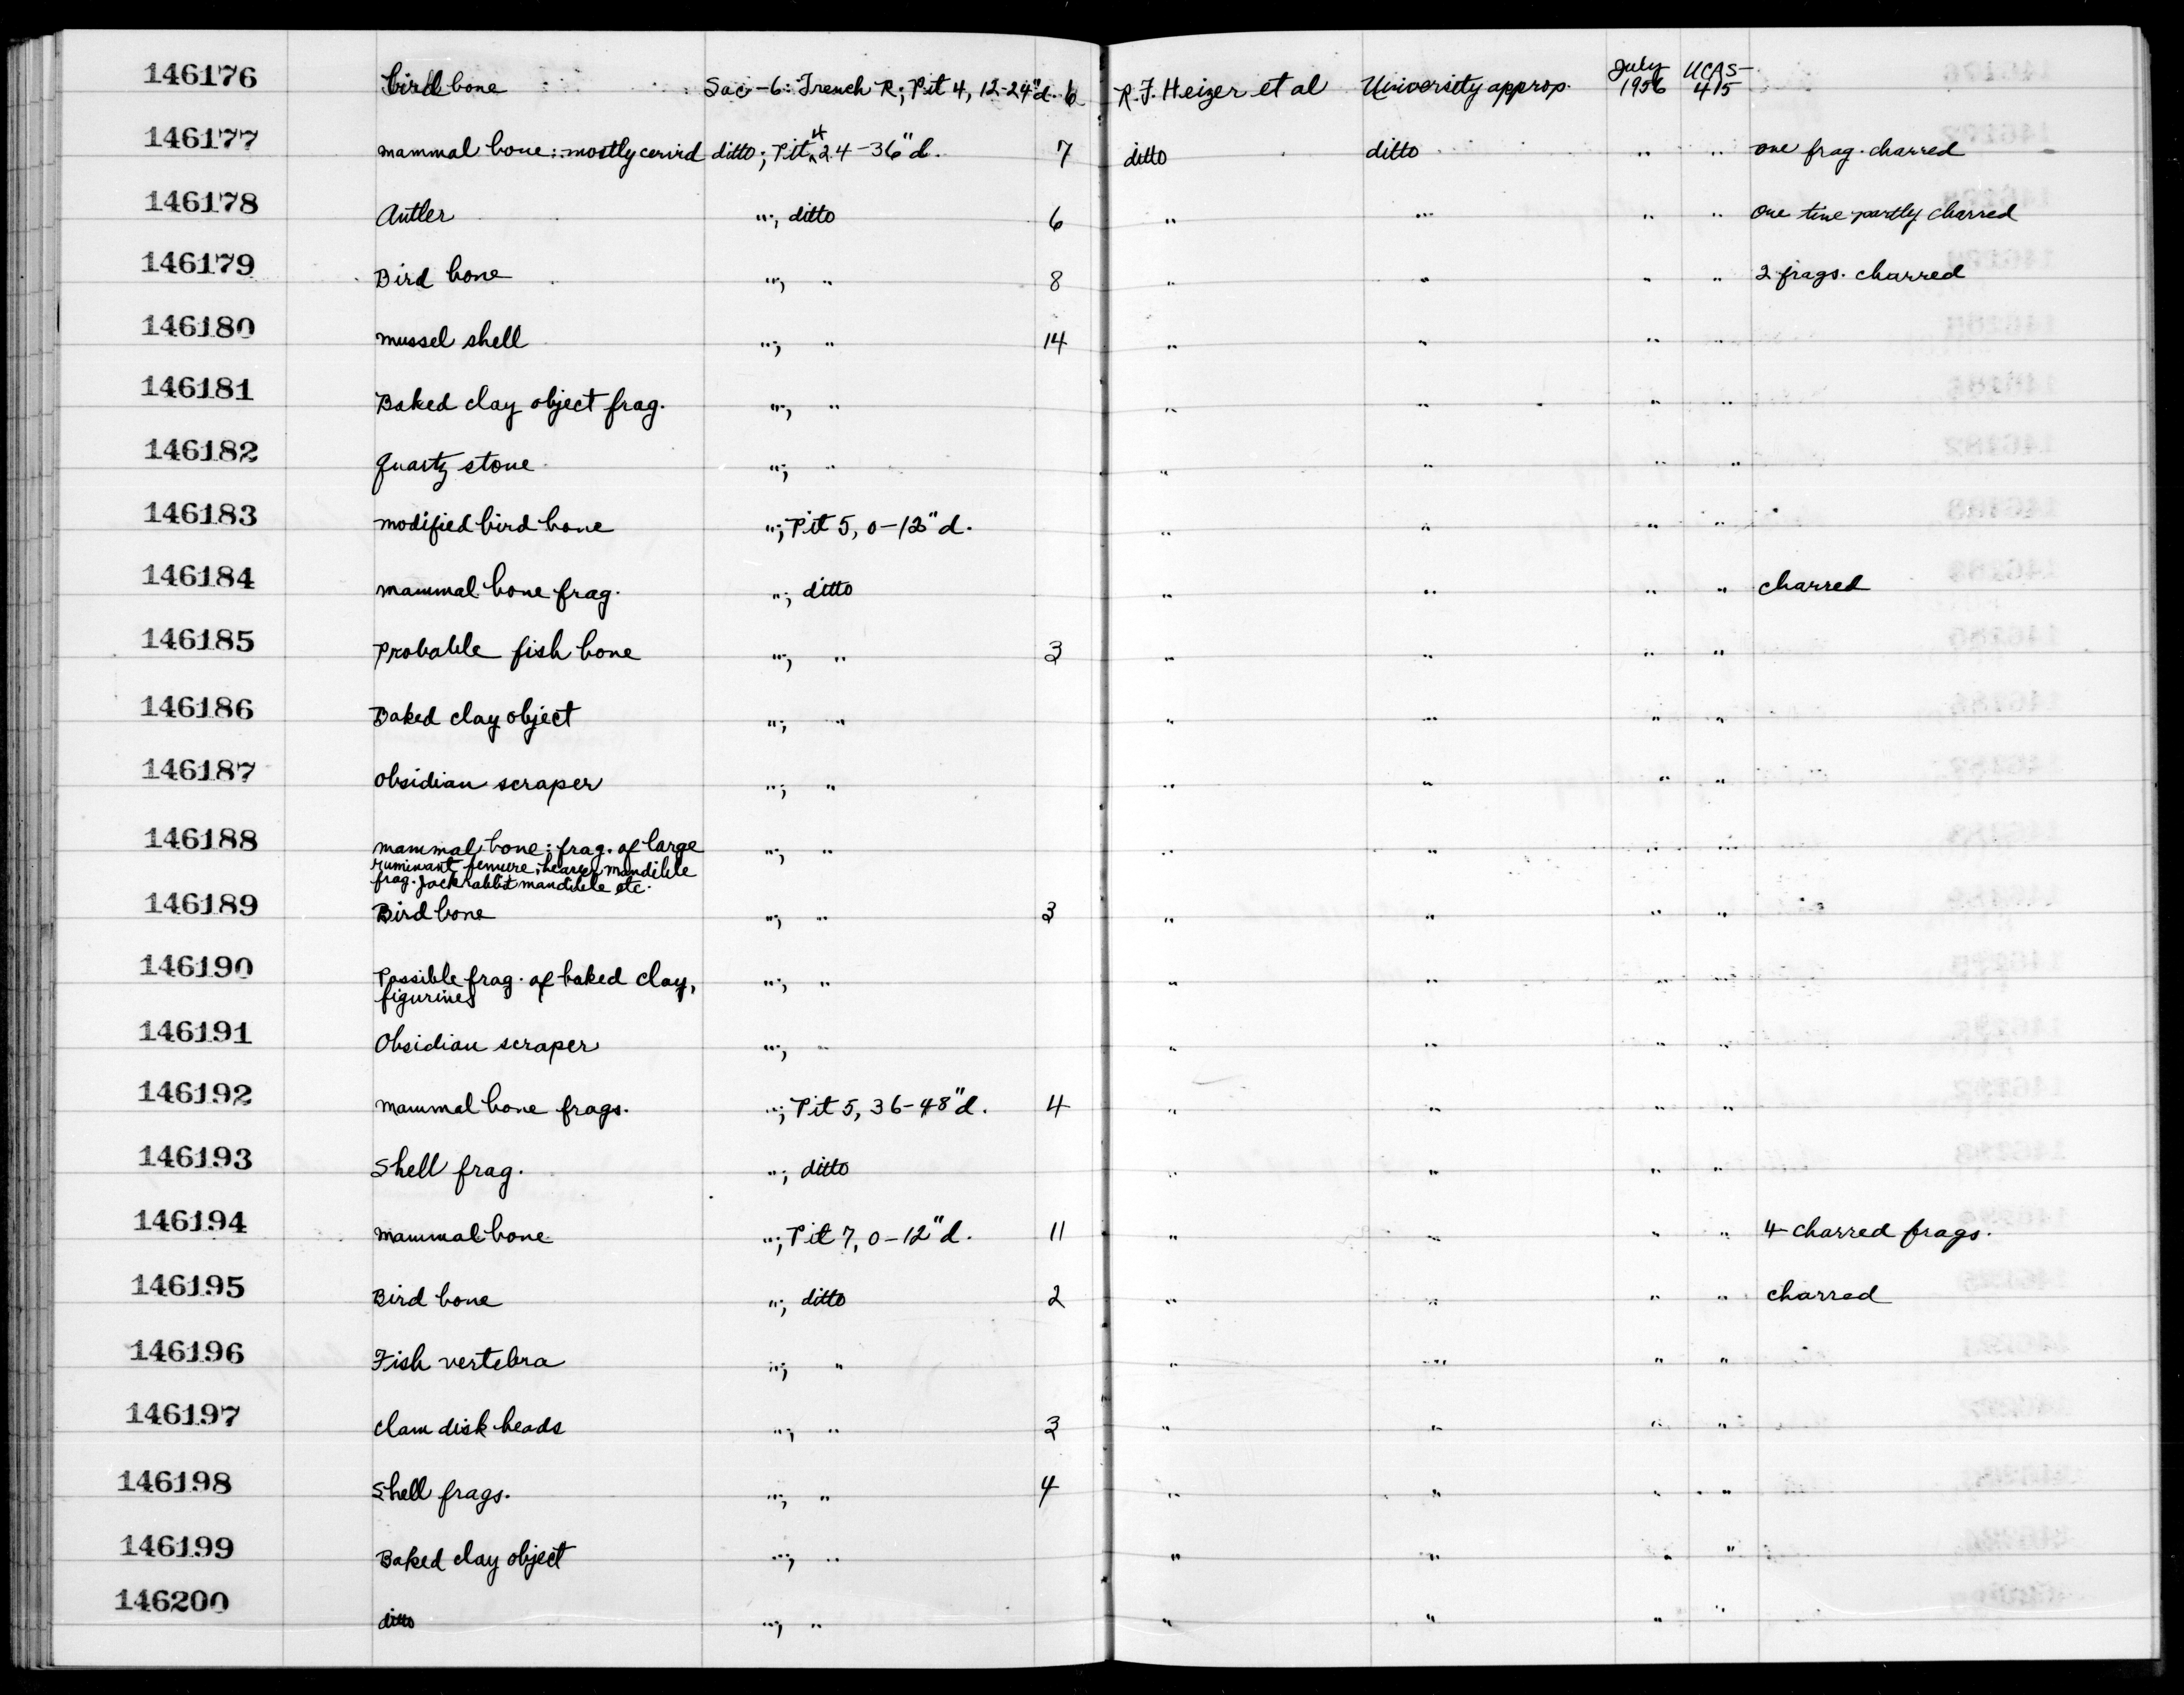 146176 bird bone Sac-6: Trench R; Pit 4, 12-24"d. 6 R.F. Heizer et al University approp. July 1956 UCAS-415
146177 mammal bone: mostly cervid ditto; Pit 4 24-36"d. 7 ditto ditto " " one frag. charred
146178 Antler "; ditto 6 " " " " one tine partly charred
146179 Bird bone "; " 8 " " " " 2 frags. charred
146180 mussel shell "; " 14 " " " "
146181 Baked clay object frag. "; " " " " "
146182 quartz stone "; " " " " "
146183 modified bird bone "; Pit 5, 0-12"d. " " " "
146184 mammal bone frag. "; ditto " " " " charred
146185 Probable fish bone "; " 3 " " " "
146186 Baked clay object "; " " " " "
146187 obsidian scraper "; " " " " "
146188 mammal bone: frag. of large "; " " " " "
ruminant femure, beaver mandible
frag. jackrabbit mandible etc.
146189 Bird bone "; " 3 " " " "
146190 Possible frag. of baked clay, "; " " " " "
figurines
146191 Obsidian scraper "; " " " " "
146192 mammal bone frags. "; Pit 5, 36-48"d. 4 " " " "
146193 Shell frag. "; ditto " " " "
146194 mammal bone "; Pit 7, 0-12"d. 11 " " " " 4 charred frags.
146195 Bird bone "; ditto 2 " " " " charred
146196 Fish vertebra "; " " " " "
146197 clam disk beads "; " 3 " " " "
146198 Shell frags. "; " 4 " " " "
146199 Baked clay object "; " " " " "
146200 ditto "; " " " " "